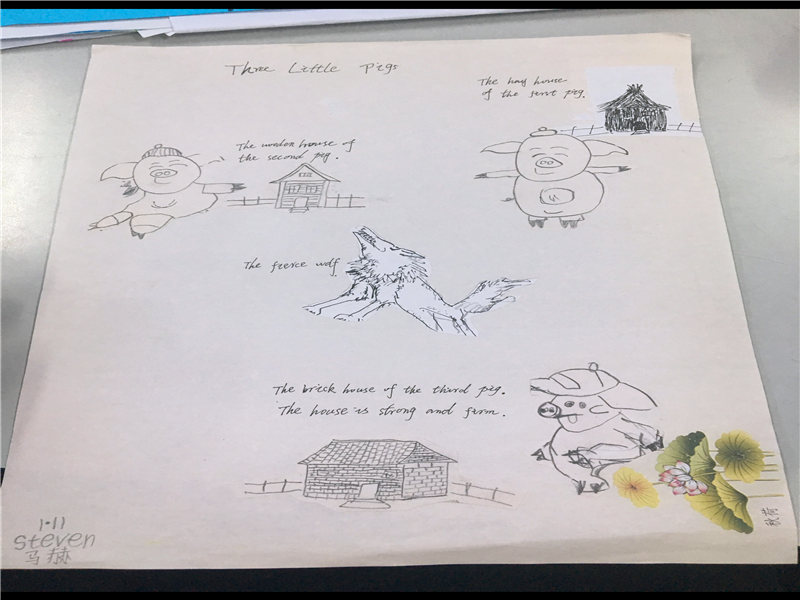 Three Little Pigs
The hay house
of the first pig.
The wooden house of
the second pig.
The fierce wolf
The brick house of the third pig.
The house is strong and firm.
1.11
steven
马赫